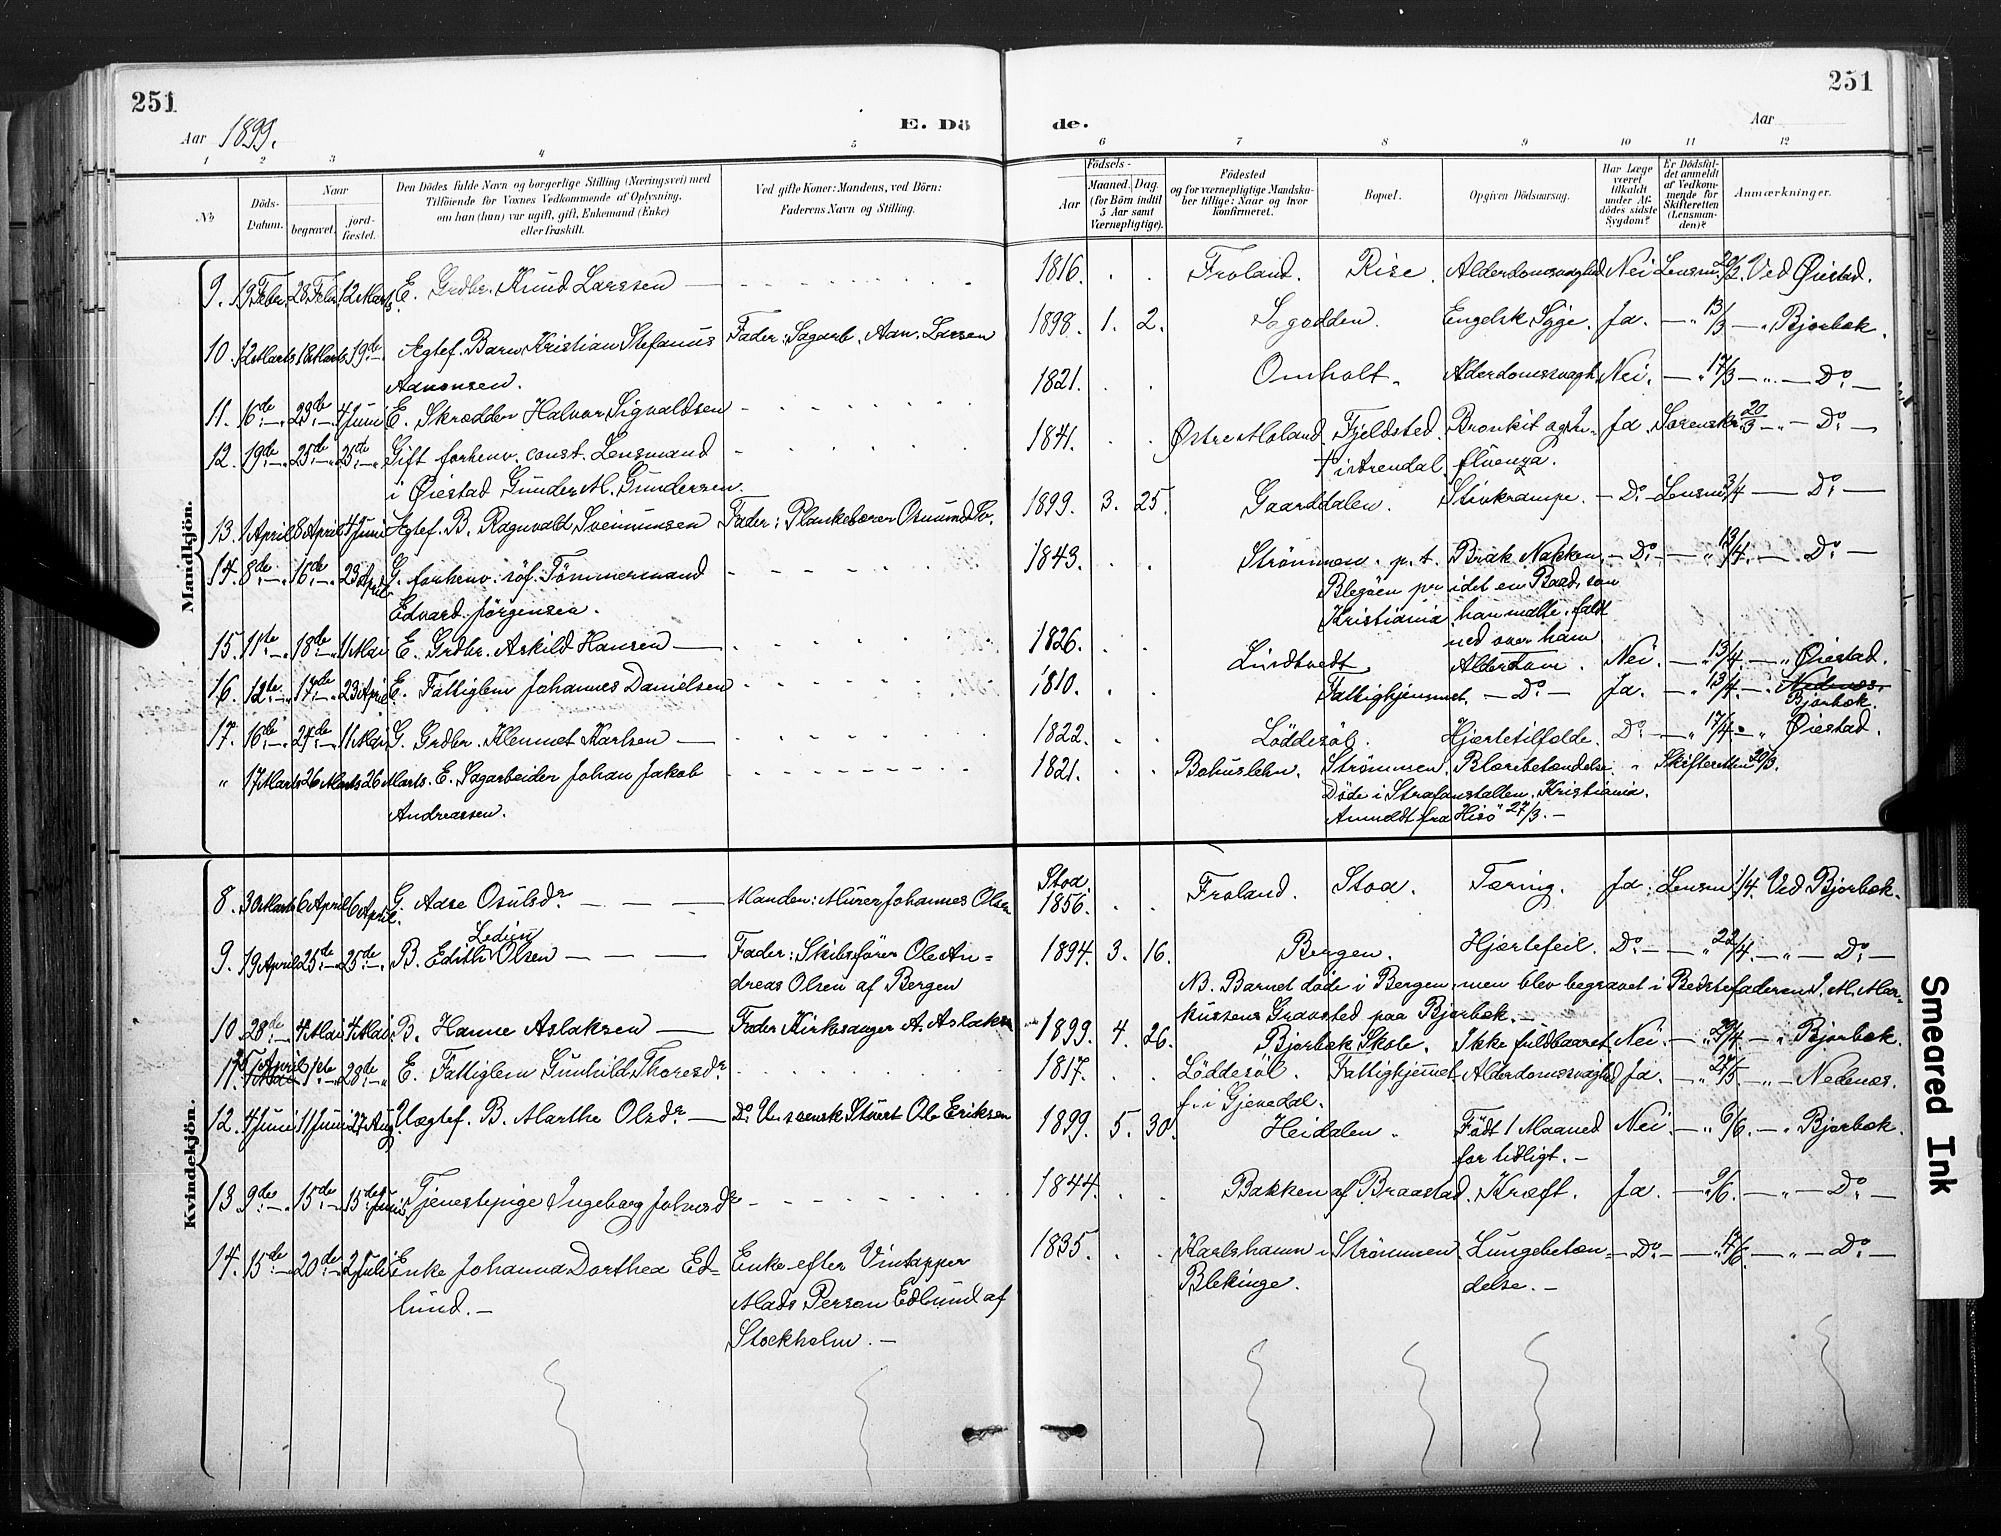 251
251
Aar 1899.
E. Dö
de.
Aar
1 2 3 4 5 6 7 8 9 10 11 12
No
Döds-Datum.
Naar
begravet.
jord-fæstet.
Den Dödes fulde Navn og borgerlige Stilling (Næringsvei) med
Tilföiende for Voxnes Vedkommende af Oplysning,
om han (hun) var ugift, gift, Enkemand (Enke)
eller fraskilt.
Ved gifte Koner: Mandens, ved Börn:
Faderens Navn og Stilling.
Födsels-
Aar
Maaned. Dag.
(for Börn indtil
5 Aar samt
Værnepligtige).
Födested
og for værnepligtige Mandska-
ber tillige: Naar og hvor
konfirmeret.
Bopæl.
Opgiven Dödsaarsag.
Har Læge
været
tilkaldt
under Af-
dødes sidste
Sygdom?
Er Dödsfal-
det anmeldt
af Vedkom-
mende for
Skifteretten
(Lensman-
den)?
Anmærkninger.
Mandkjön.
9. 19 Febr. 28 Febr. 12 Marts E. Grdbr. Knud Larssen — 1816. Froland. Rise. Alderdomssvaghed Nei Lensm. 20/2. Ved Øiestad.
10. 12 Marts 18 Marts 19de Ægtef. Barn Kristian Stefanus Fader: Sagarb. Aan. Larsen 1898. 1. 2. Engelsk Syge. Ja. — " 13/3 — " Bjorbæk.
Aanonsen.
11. 16de 23de 4 Juni E. Skrædder Halvor Sigvaldsen 1821. Omholt. Alderdomssvagh. Nei. — " 17/3 — " — Do —
12. 19de 25de 25de Gift forhenv. const. Lensmand 1841. Østre Moland Fjeldsted. Bronkit og In- Ja Sorenskr. 20/3 — " — Do —
i Øiestad Gunder M. Gundersen † i Arendal. fluenza.
13. 1 April 8 April 4 Juni Ægtef. B. Ragnvald Sveinunsen Fader: Plankebærer 1899. 3. 25. Gaarddalen. Stivkrampe. — Do — Lensm. 3/4 — Do —
14. 8de 16de 23 April G. forhenv. söf. Tömmermand 1843. Strömmen. p. t. Bræk Nakken, — Do — — " 12/4. — Do —
Edvard Jörgensen. Blegöen pr idet en Baad, som
Kristiania han malte, faldt
ned over ham
15. 11te 18de 11 Mai E. Grdbr. Askild Hansen — 1826. Lindtvedt. Alderdom. Nei. — " 13/4. — " Øiestad.
16. 12te 17de 23 April E. Fattiglem Johannes Danielsen 1810. Fattighjemmet. — Do — Ja. — " 13/4. — " Nedenes.
Bjorbæk.
17. 16de 24de 11 Mai G. Grdbr. Klemmet Karlsen — 1822. Löddesöl. Hjertetilfælde. Do — — " 17/4 — " Øiestad.
" 17 Marts 26 Marts 26 Marts. E. Sagarbeider Johan Jakob 1821. Bohuslehn. Strömmen. Blærebetændelse. " Skifteretten 20/3.
Andreassen. Døde i Strafanstalten, Kristiania.
Anmeldt fra Hisö 27/3. —
Kvindekjön.
8. 30 Marts 6 April 6 April G. Aase Osulsdr — Manden: Murer Johannes Olsen Stod. 1856. Froland. Stoa. Tæring. Ja. Lensm. 1/4. Ved Bjorbæk.
9. 19 April 25de 25de B. Edith Olsen — Fader: Skibsfører Ole An- 1894. 3. 16. Bergen. Hjertefeil. Do — — " 22/4. — " — Do —
dreas Olsen af Bergen NB. Barnet døde i Bergen, men blev begravet i Bedstefaderens J. M. Mar-
kussens Gravsted paa Bjorbæk. —
10. 28de 4 Mai 4 Mai B. Hanne Aslaksen — Fader Kirkesanger A. Aslaksen 1899. 4. 26. Bjorbæk Skole. Ikke fuldbaaret Nei. — 29/4. — " Bjorbæk.
11. April 28de " E. Fattiglem Gunhild Thoresdr 1817. Löddesöl. Fattighjemmet Alderdomssvaghed Ja. — " 27/5. — " — Nedenes.
f. i Gjevedal.
12. 4 Juni 11 Juni 27 Aug. Uægtef. B. Marthe Olsdr — Do: U. svensk Stuert Ole Eriksen 1899. 5. 30. Heidalen. Født 1 Maaned Nei. — " 6/6. — " Bjorbæk.
for tidligt. —
13 9de 15de 15de Juni Tjenestepige Ingeborg Johnsdr 1844. Bakken af Braastad. Kræft. Ja. — 9/6. — " — Do —
14. 15de 20de 2 Juli Enke Johanna Dorthea Ed- Enke efter Vintapper 1835. Karlshamn i Strömmen Lungebetæn- — Do — — " 17/6. — " — Do —
lund. — Mads Person Edlund af Blekinge. delse. —
Stockholm. —
Smeared Ink